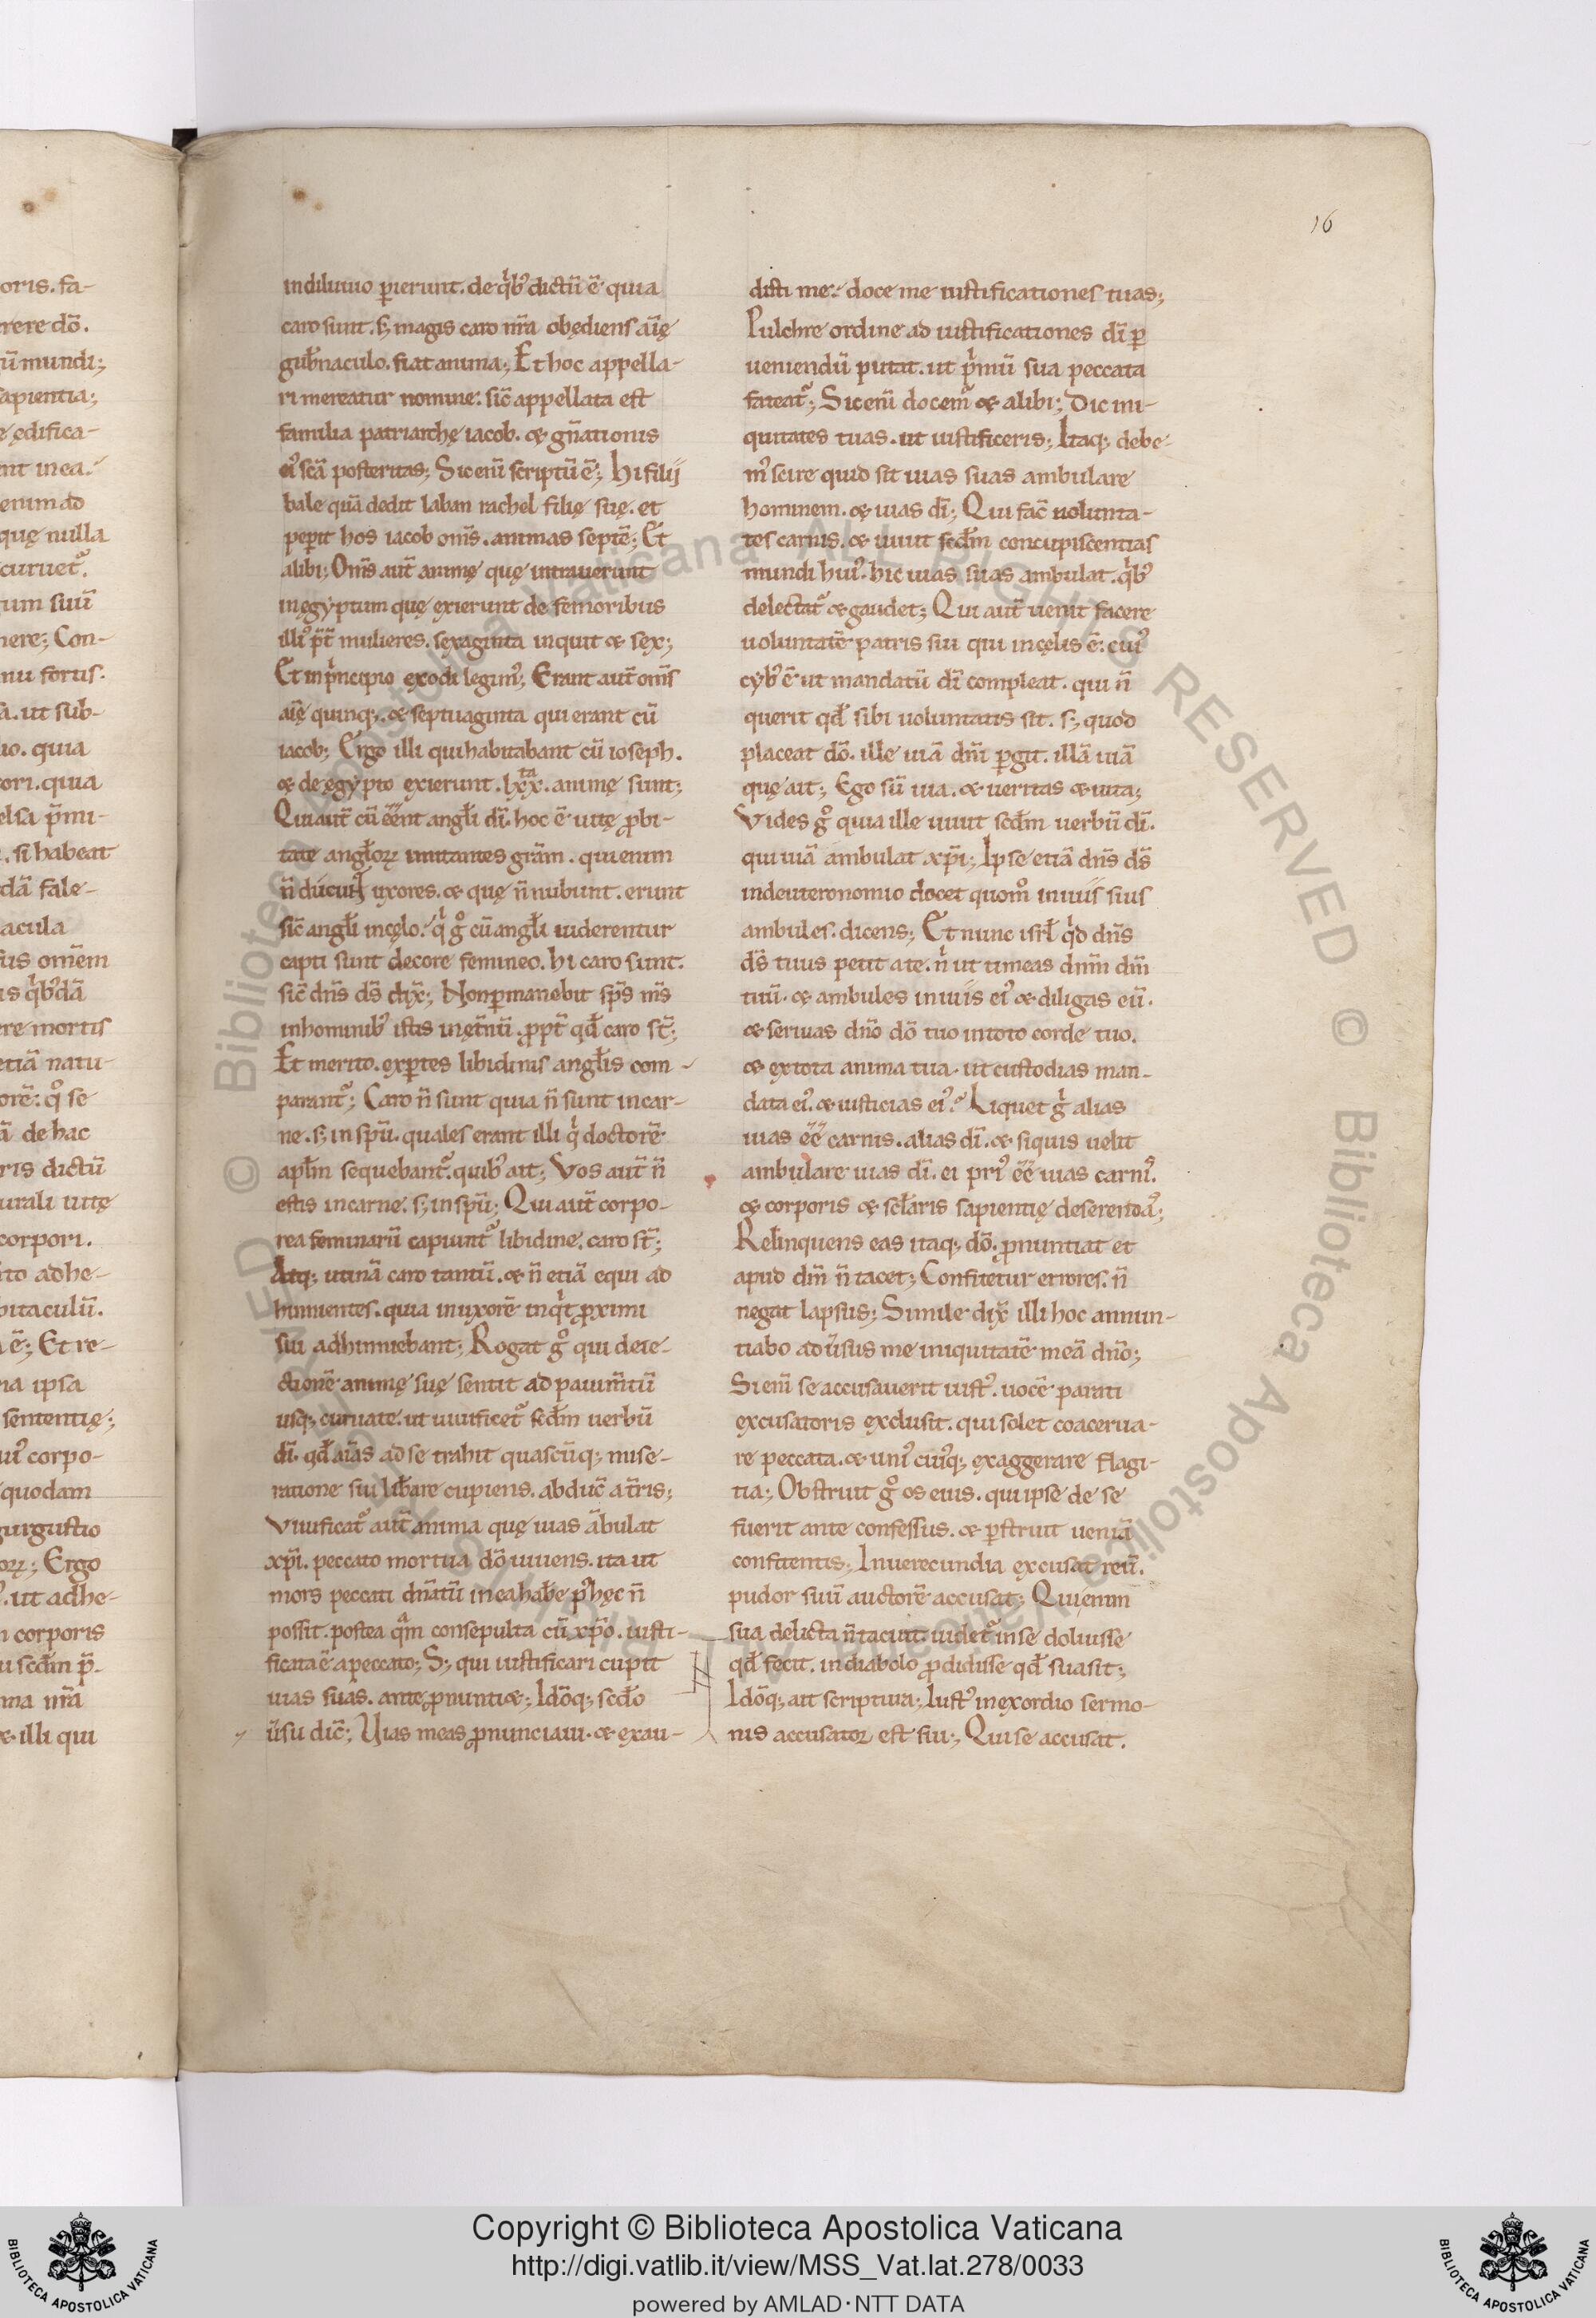 oris. fa-
rere dō.
ū mundi;
sapientia;
ędifica-
nt in ea.
enim ad
quę nulla
curuet᷎.
tum suū
nere; Con-
nu fortis.
a. ut sub-
io. quia
tori. quia
elsa p̄mi-
. si habeat
dā fale-
acula
sus omēm
is q̇bꝰdā
ere mortis
etiā natu-
orē: q̊ se
ā de hac
ris dictū
urali uitę
corpori.
ito adhe-
bitaculū.
ē; Et re-
na ipsa
sententię;
uiꝰ corpo-
quodam
gurgustio
oꝝ; Ergo
ꝰ. ut adhe-
n corporis
u scđm p̄-
ma nr̄a
illi qui
16
indiluuio ꝑierunt. de q̇bꝰ dictū ē quia
caro sunt. s; magis caro nr̄a obędiens aīę
gub̄naculo. fiat anima; Et hoc appella-
ri mereatur nomine: sic̄ appellata est
familia patriarchę iacob. ⁊ gn̄ationis
eiꝰ sc̄a posteritas; Sic enī scriptū ē; hi filij
bale quā dedit laban rachel filię suę. et
peꝑit hos iacob om̄s. animas septē; Et
alibi; Om̄s aut̄ animę quę intrauerunt
inęgyptum quę exierunt de femoribus
illiꝰ p̄t̄ mulieres. sexaginta inquit ⁊ sex;
Et in ṗncipio exodi legimꝰ; Erant aut̄ om̄s
aīę quinq;. ⁊ septuaginta qui erant cū
iacob; Ergo illi qui habitabant cū ioseph.
⁊ de ęgypto exierunt. lxxᵗᵃ. animę sunt;
Qui aut̄ cū ēēnt angl̄i dī. hoc ē uitę ꝓbi-
tate angl̄oꝝ imitantes grām. qui enim
n̄ ducunt uxores. ⁊ quę n̄ nubunt. erunt
sic̄ angl̄i incęlo. q̇ g̊ cū angl̄i uiderentur
capti sunt decore femineo. hi caro sunt.
sic̄ dn̄s ds̄ dix̄; Non ꝑmanebit sps̄ ms̄
inhominibꝰ istis inęt̄nū. ꝓpt̄ qđ caro st̄;
Et merito. exꝑtes libidinis angl̄is com-
parant᷎; Caro n̄ sunt quia n̄ sunt incar-
ne. s; in spū. quales erant illi q̇ doctorē
apl̄m sequebant᷎. quibꝰ ait; Vos aut̄ n̄
estis incarne. s; in spū; Qui aut̄ corpo-
rea feminarū capiunt᷎ libidine. caro st̄;
Atq; utinā caro tantū. ⁊ n̄ etiā equi ad
hinnientes. quia inuxorē inq̇t ꝓximi
sui adhinniebant; Rogat g̊ qui deie-
ctionē animę suę sentit ad pauim̄tū
usq; curuatę. ut uiuificet᷎ scđm uerbū
dī. qđ aīas ad se trahit quascūq; mise-
ratione sui lib̄are cupiens. abduc̄ a t̄ris;
Viuificat᷎ aut̄ anima quę uias ābulat
xp̄i. peccato mortua dō uiuens. ita ut
mors peccati dn̄atū inea hab̄e pꝰhęc n̄
possit. postea qᵃm consepulta cū xp̄o. iusti-
ficata ē apeccato; S; qui iustificari cupit
uias suas. ante ꝓnuntiet; Idōq; scđo
ūsu dic̄; Uias meas ꝓnunciaui. ⁊ exau-
disti me: doce me iustificationes tuas;
Pulchre ordine ad iustificationes dī ꝑ
ueniendū putat. ut ṗmū sua peccata
fateat᷎; Sic enī docem᷎ ⁊ alibi; Dic ini-
quitates tuas. ut iustificeris; Itaq; debe-
mꝰ scire quid sit uias suas ambulare
hominem. ⁊ uias dī; Qui fac̄ uolunta-
tes carnis. ⁊ uiuit scđm concupiscentias
mundi huiꝰ. hic uias suas ambulat. q̇bꝰ
delectat᷎ ⁊ gaudet; Qui aut̄ uenit facere
uoluntatē patris sui qui incęlis ē: cuiꝰ
cybꝰ ē ut mandatū dī compleat. qui n̄
querit qđ sibi uoluntatis sit. s; quod
placeat dō. ille uiā dn̄i ꝑgit. illā uiā
quę ait; Ego sū uia. ⁊ ueritas ⁊ uita;
Vides g̊ quia ille uiuit scđm uerbū dī.
qui uiā ambulat xp̄i; Ipse etiā dn̄s ds̄
indeuteronomio docet quom̊ inuiis suis
ambules. dicens; Et nunc isrl̄ q̇d dn̄s
ds̄ tuus petit a te. n̄ ut timeas dn̄m dm̄
tuū. ⁊ ambules inuiis eiꝰ ⁊ diligas eū.
⁊ seruias dn̄o dō tuo intoto corde tuo.
⁊ extota anima tua. ut custodias man-
data eiꝰ. ⁊ iusticias eiꝰ. Liquet g̊ alias
uias ēē carnis. alias dī. ⁊ siquis uelit
ambulare uias dī. ei priꝰ ēē uias carnis.
⁊ corporis ⁊ scl̄aris sapientię deserendas;
Relinquens eas itaq; dō. ꝓnuntiat et
apud dm̄ n̄ tacet; Confitetur errores. n̄
negat lapsus; Simile dix̄ illi hoc annun-
tiabo adūsus me iniquitatē meā dn̄o;
Si enī se accusauerit iustꝰ. uocē parati
excusatoris exclusit. qui solet coacerua-
re peccata. ⁊ uniꝰ cuiꝰq; exaggerare flagi-
tia; Obstruit g̊ os eius. qui ipse de se
fuerit ante confessus. ⁊ p̄struit ueniā
confitentis; Inuerecundia excusat reū.
pudor suū auctorē accusat; Qui enim
sua delicta n̄ tacuit. uidet᷎ inse doluisse
qđ fecit. indiabolo ꝓdidisse qđ suasit;
Idōq; ait scriptura; Iustꝰ inexordio sermo-
nis accusator est sui; Qui se accusat.
© Biblioteca Apostolica Vaticana ALL RIGHTS RESERVED © Biblioteca Apostolica Vaticana
Copyright © Biblioteca Apostolica Vaticana
http://digi.vatlib.it/view/MSS_Vat.lat.278/0033
powered by AMLAD·NTT DATA
BIBLIOTECA APOSTOLICA VATICANA
BIBLIOTECA APOSTOLICA VATICANA